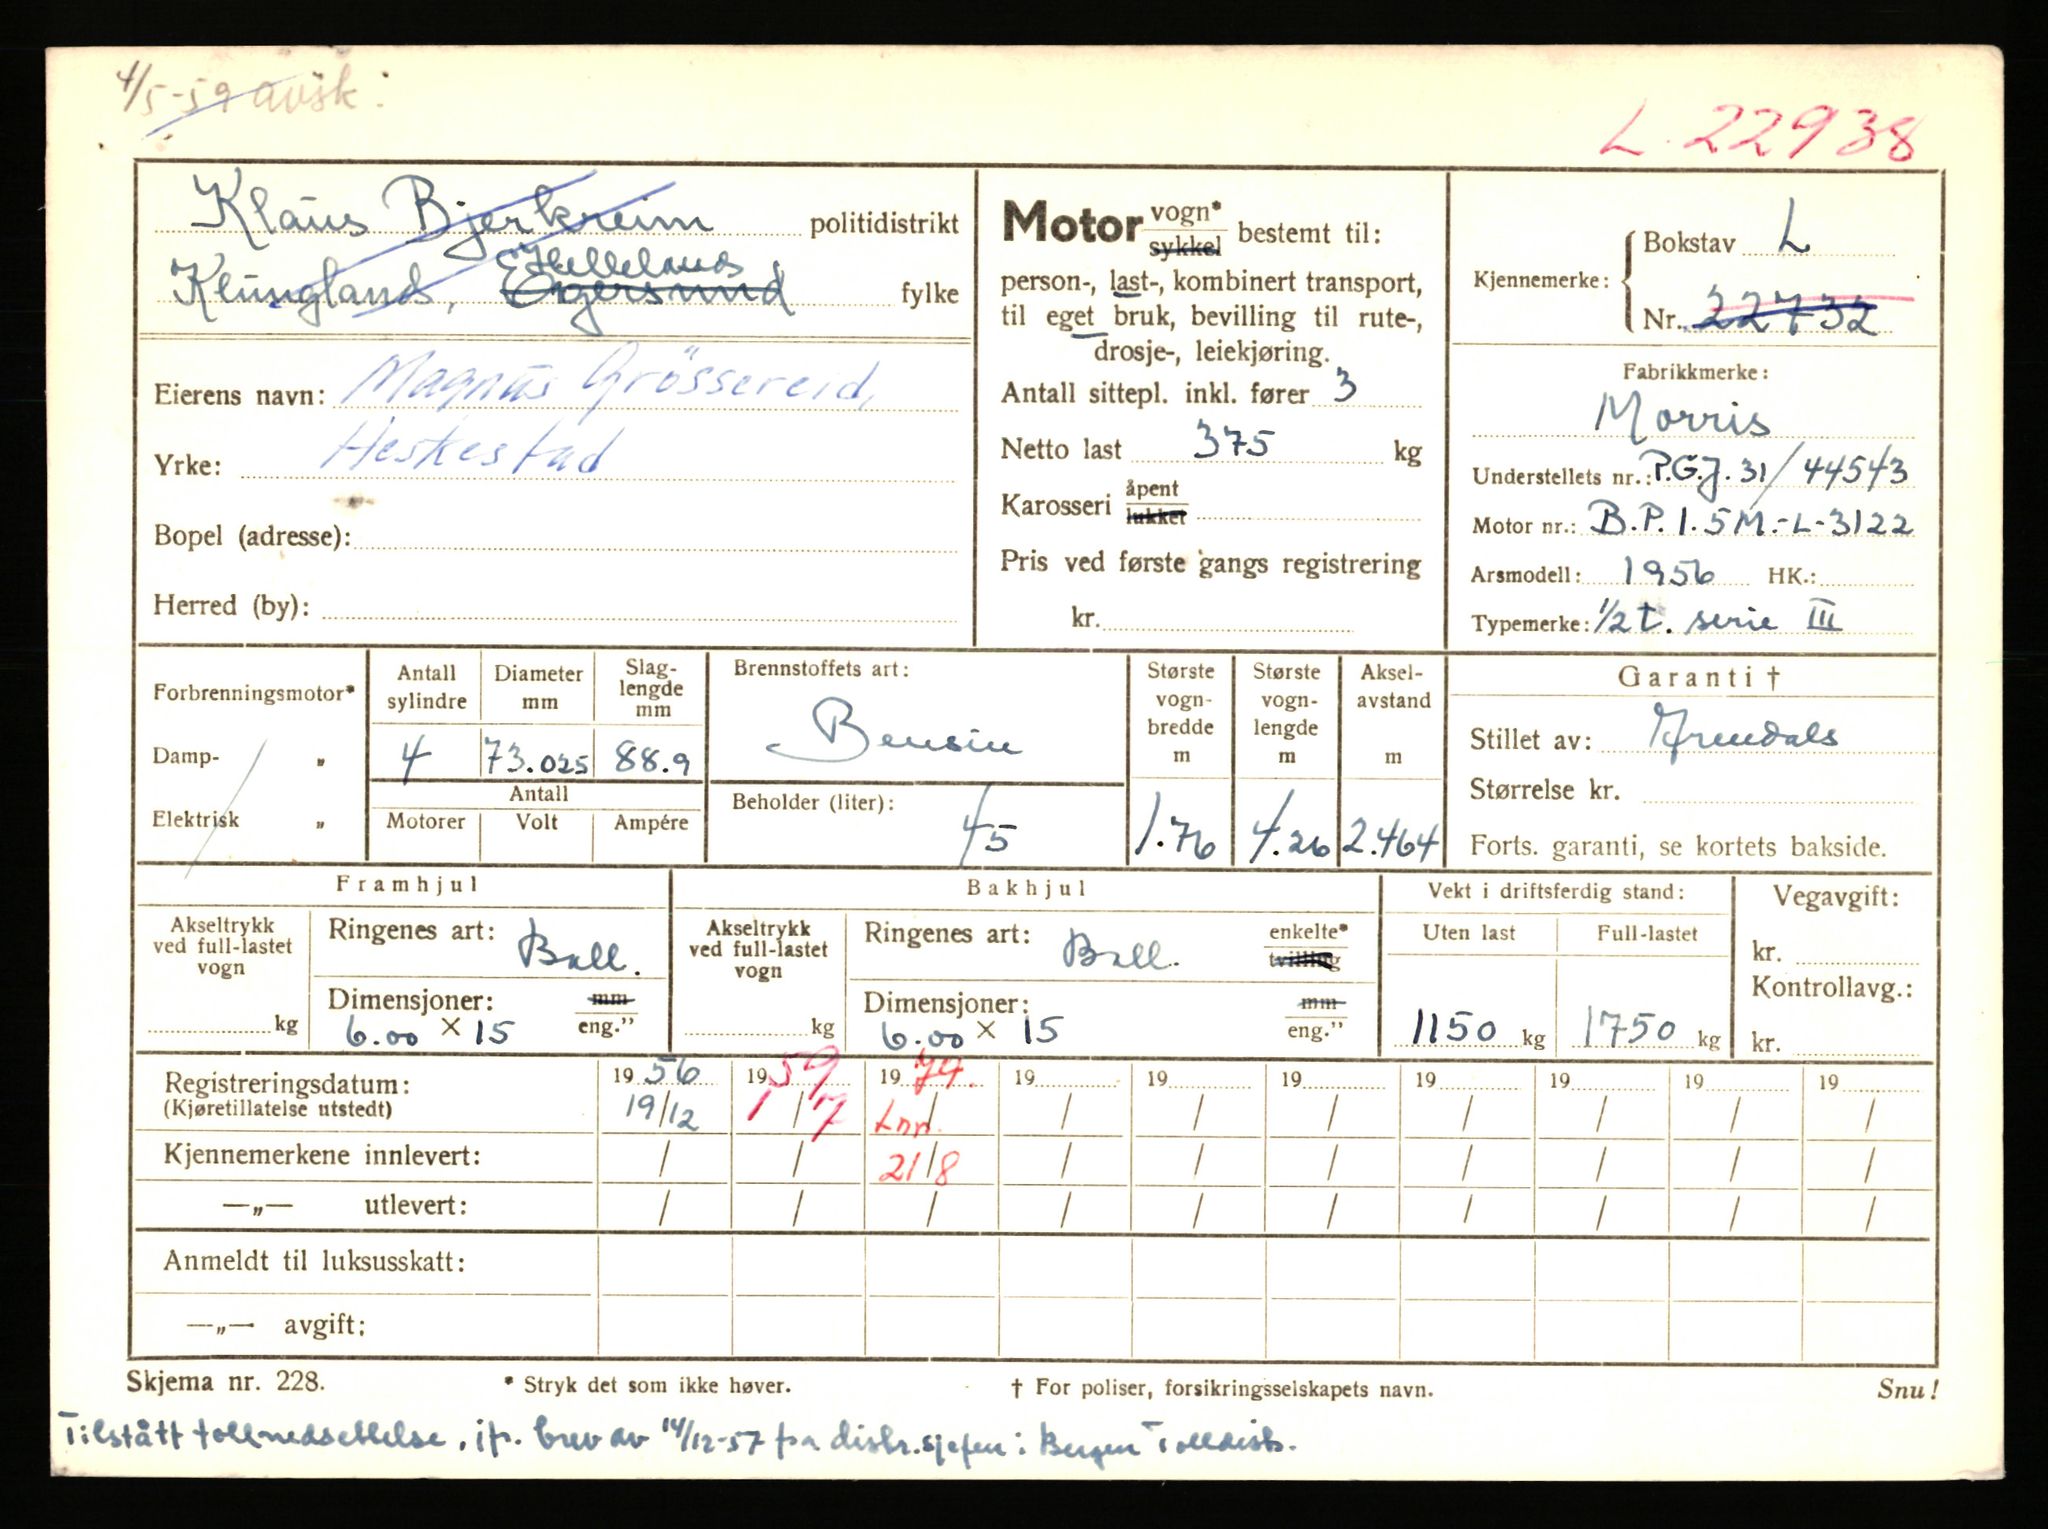 4/5-59 avsk:
L. 22938
Klaus Bjerkreim politidistrikt
Hellelands
Klungland, Egersund fylke
Eierens navn: Magnus Grössereid,
Yrke: Heskestad
Bopel (adresse):
Herred (by):
Motor vogn* sykkel bestemt til:
person-, last-, kombinert transport,
til eget bruk, bevilling til rute-,
drosje-, leiekjøring.
Antall sittepl. inkl. fører 3
Netto last 375 kg
Karosseri åpent lukket
Pris ved første gangs registrering
kr.
Kjennemerke: Bokstav L
Nr. 22732
Fabrikkmerke:
Morris
Understellets nr.: P.G.J. 31/44543
Motor nr.: B.P.1.5M.-L-3122
Arsmodell: 1956 HK.:
Typemerke: 1/2 t. serie III
Forbrenningsmotor*
Damp- „
Elektrisk „
Antall sylindre
4
Diameter mm
73.025
Slaglengde mm
88.9
Antall
Motorer Volt Ampére
Brennstoffets art:
Bensin
Beholder (liter): 45
Største vognbredde m
1.76
Største vognlengde m
4.26
Akselavstand m
2.464
Garanti †
Stillet av: Arendals
Størrelse kr.
Forts. garanti, se kortets bakside.
Framhjul
Akseltrykk ved full-lastet vogn
kg
Ringenes art: Ball.
Dimensjoner: mm eng.”
6.00 × 15
Bakhjul
Akseltrykk ved full-lastet vogn
kg
Ringenes art: Ball. enkelte* tvilling
Dimensjoner: mm eng.”
6.00 × 15
Vekt i driftsferdig stand:
Uten last Full-lastet
1150 kg 1750 kg
Vegavgift:
kr.
Kontrollavg.:
kr.
Registreringsdatum: 19 56 19 59 19 74. 19 19 19 19 19 19 19
(Kjøretillatelse utstedt) 19/12 1/7 Lnn. / / / / / / / /
Kjennemerkene innlevert: / / 21/8 / / / / / / /
—„— utlevert: / / / / / / / / / /
Anmeldt til luksusskatt:
—„— avgift:
Skjema nr. 228. * Stryk det som ikke høver. † For poliser, forsikringsselskapets navn. Snu!
Tilstått tollnedsettelse, jfr. brev av 14/12-57 fra distr.sjefen i Bergen Tolldistr.